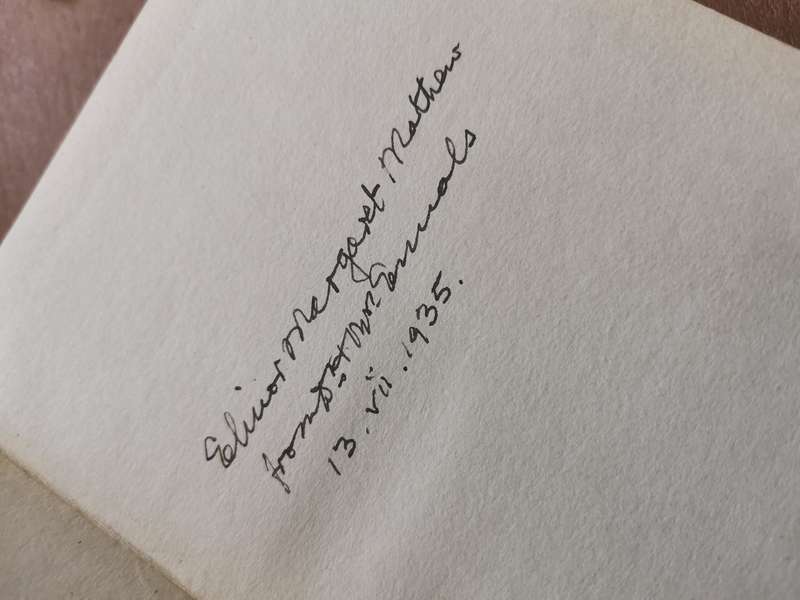 Elinor Margaret Mathew
from Dr & Mrs Ennals
13.vii.1935.